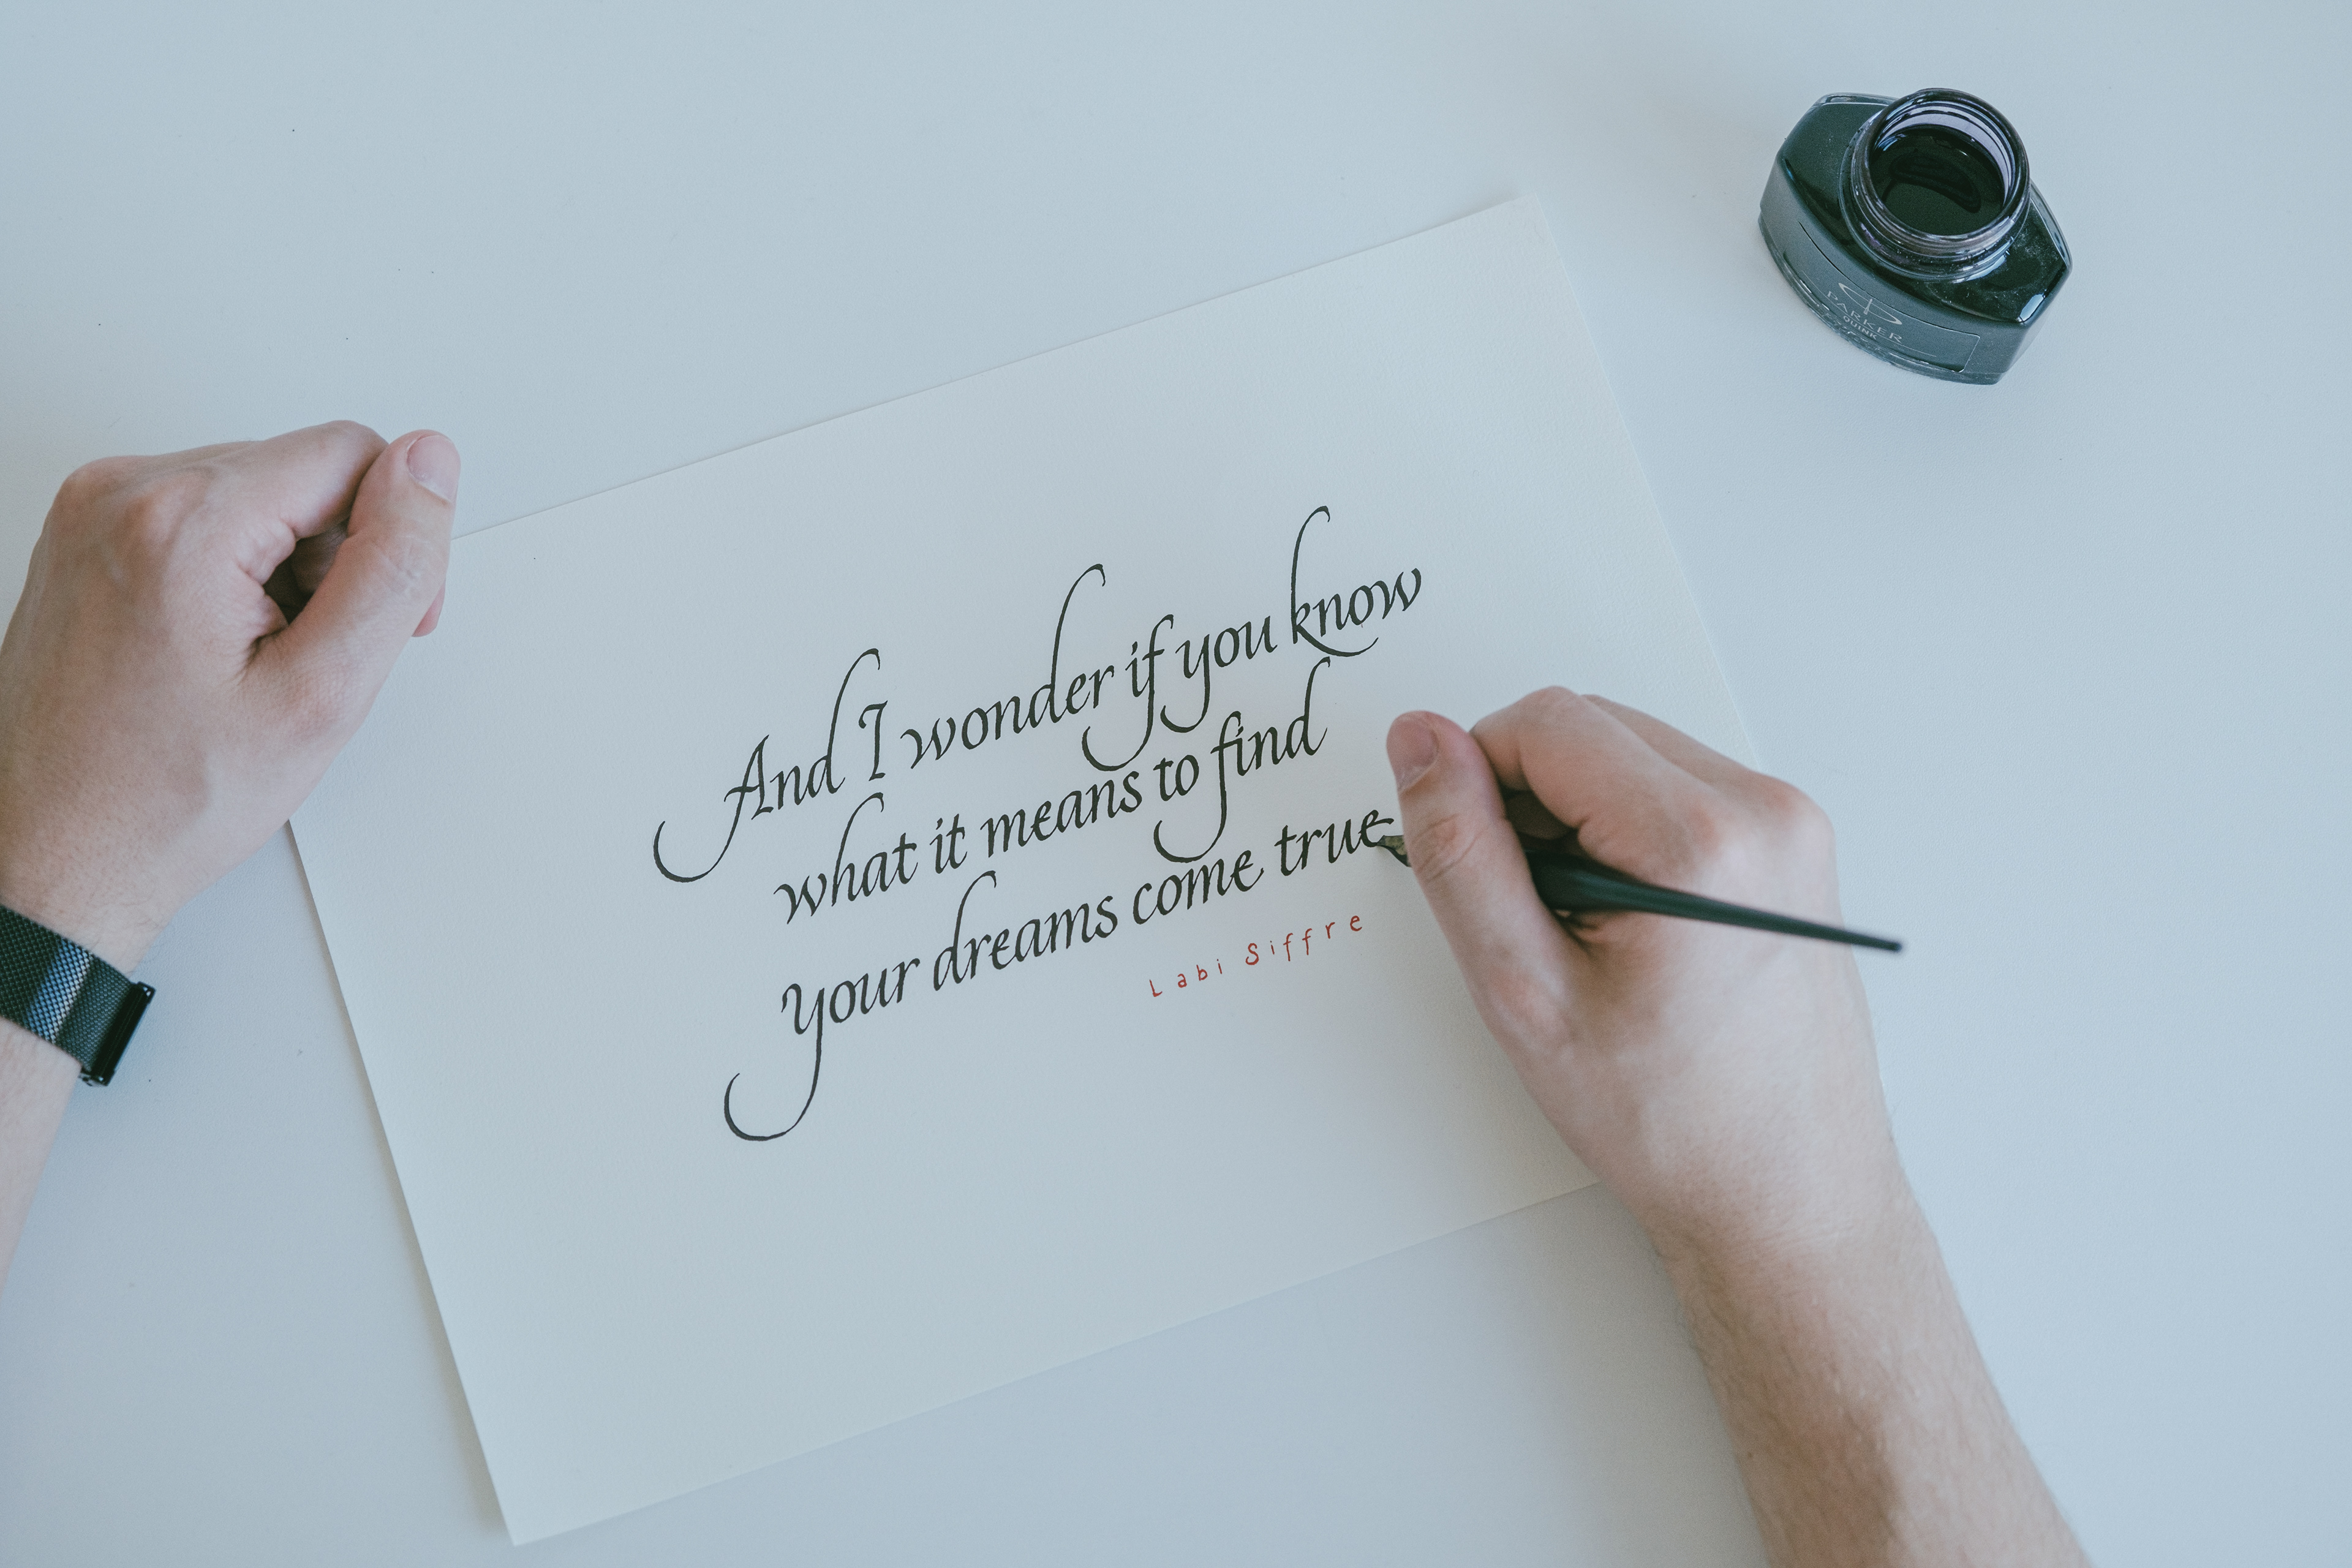 And I wonder if you know
what it means to find
your dreams come true
Labi Siffre
PARKER
QUINK